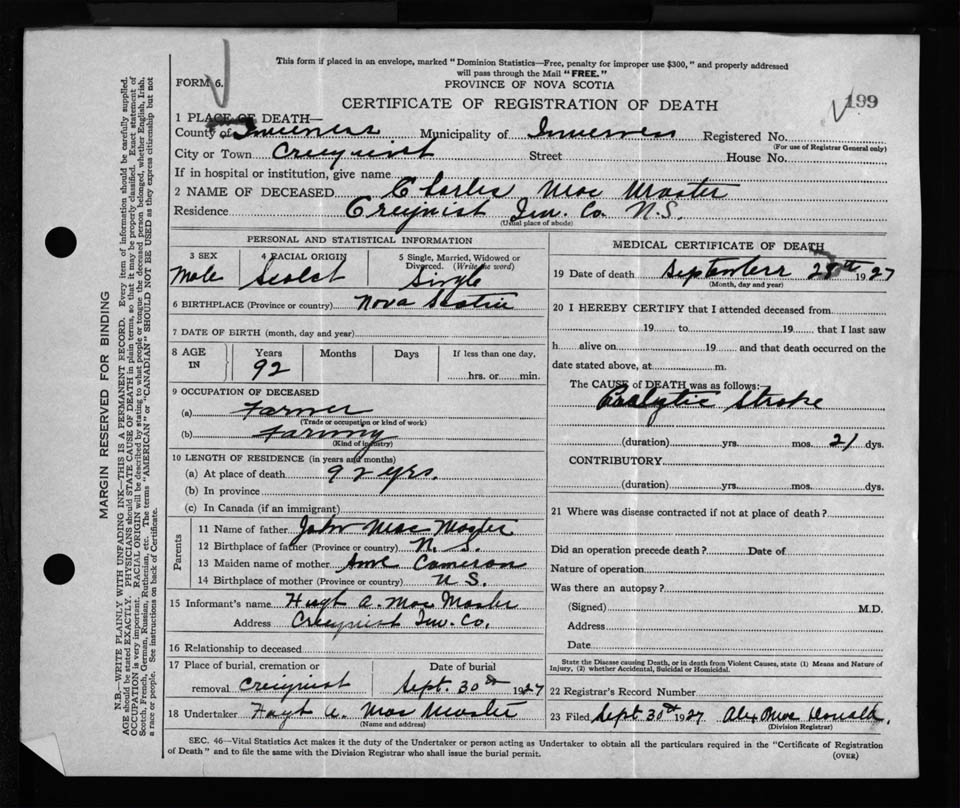 This form if placed in an envelope, marked "Dominion Statistics—Free, penalty for improper use $300," and properly addressed
will pass through the Mail "FREE."
FORM 6.
PROVINCE OF NOVA SCOTIA
CERTIFICATE OF REGISTRATION OF DEATH
199
1 PLACE OF DEATH—
County of Inverness Municipality of Inverness Registered No.
(For use of Registrar General only)
City or Town Creignist Street House No.
If in hospital or institution, give name
2 NAME OF DECEASED Charles Mac Master
Residence Creignist Inv. Co. N.S.
(Usual place of abode)
PERSONAL AND STATISTICAL INFORMATION
3 SEX 4 RACIAL ORIGIN 5 Single, Married, Widowed or Divorced. (Write the word)
Male Scotch Single
6 BIRTHPLACE (Province or country) Nova Scotia
7 DATE OF BIRTH (month, day and year)
8 AGE IN Years Months Days If less than one day,
92 hrs. or min.
9 OCCUPATION OF DECEASED
(a) Farmer
(Trade or occupation or kind of work)
(b) Farming
(Kind of industry)
10 LENGTH OF RESIDENCE (in years and months)
(a) At place of death 92 yrs.
(b) In province
(c) In Canada (if an immigrant)
Parents
11 Name of father John Mac Master
12 Birthplace of father (Province or country) N. S.
13 Maiden name of mother Ann Cameron
14 Birthplace of mother (Province or country) N S.
15 Informant's name A. Mac Master
Address Creignist Inv. Co.
16 Relationship to deceased
17 Place of burial, cremation or Date of burial
removal Creignist Sept. 30th 1927
18 Undertaker A. Mac Master
(Name and address)
MEDICAL CERTIFICATE OF DEATH
19 Date of death September 28th 1927
(Month, day and year)
20 I HEREBY CERTIFY that I attended deceased from
19 to 19 that I last saw
h alive on 19 and that death occurred on the
date stated above, at m.
The CAUSE of DEATH was as follows:
Stroke
(duration) yrs. mos. 21 dys.
CONTRIBUTORY
(duration) yrs. mos. dys.
21 Where was disease contracted if not at place of death?
Did an operation precede death? Date of
Nature of operation
Was there an autopsy?
(Signed) M.D.
Address
Date
State the Disease causing Death, or in death from Violent Causes, state (1) Means and Nature of
Injury, (2) whether Accidental, Suicidal or Homicidal.
22 Registrar's Record Number
23 Filed Sept 30th 1927 Alex Mac Donald
(Division Registrar)
SEC. 46—Vital Statistics Act makes it the duty of the Undertaker or person acting as Undertaker to obtain all the particulars required in the "Certificate of Registration
of Death" and to file the same with the Division Registrar who shall issue the burial permit.
(OVER)
MARGIN RESERVED FOR BINDING
N.B.—WRITE PLAINLY WITH UNFADING INK—THIS IS A PERMANENT RECORD. Every item of information should be carefully supplied.
AGE should be stated EXACTLY. PHYSICIANS should STATE CAUSE OF DEATH in plain terms, so that it may be properly classified. Exact statement of
OCCUPATION is very important. RACIAL ORIGIN will be described by stating to what people or tongue the deceased person belonged, whether English, Irish,
Scotch, French, German, Russian, Ruthenian, etc. The terms "AMERICAN" or "CANADIAN" SHOULD NOT BE USED as they express citizenship but not
a race or people. See instructions on back of Certificate.